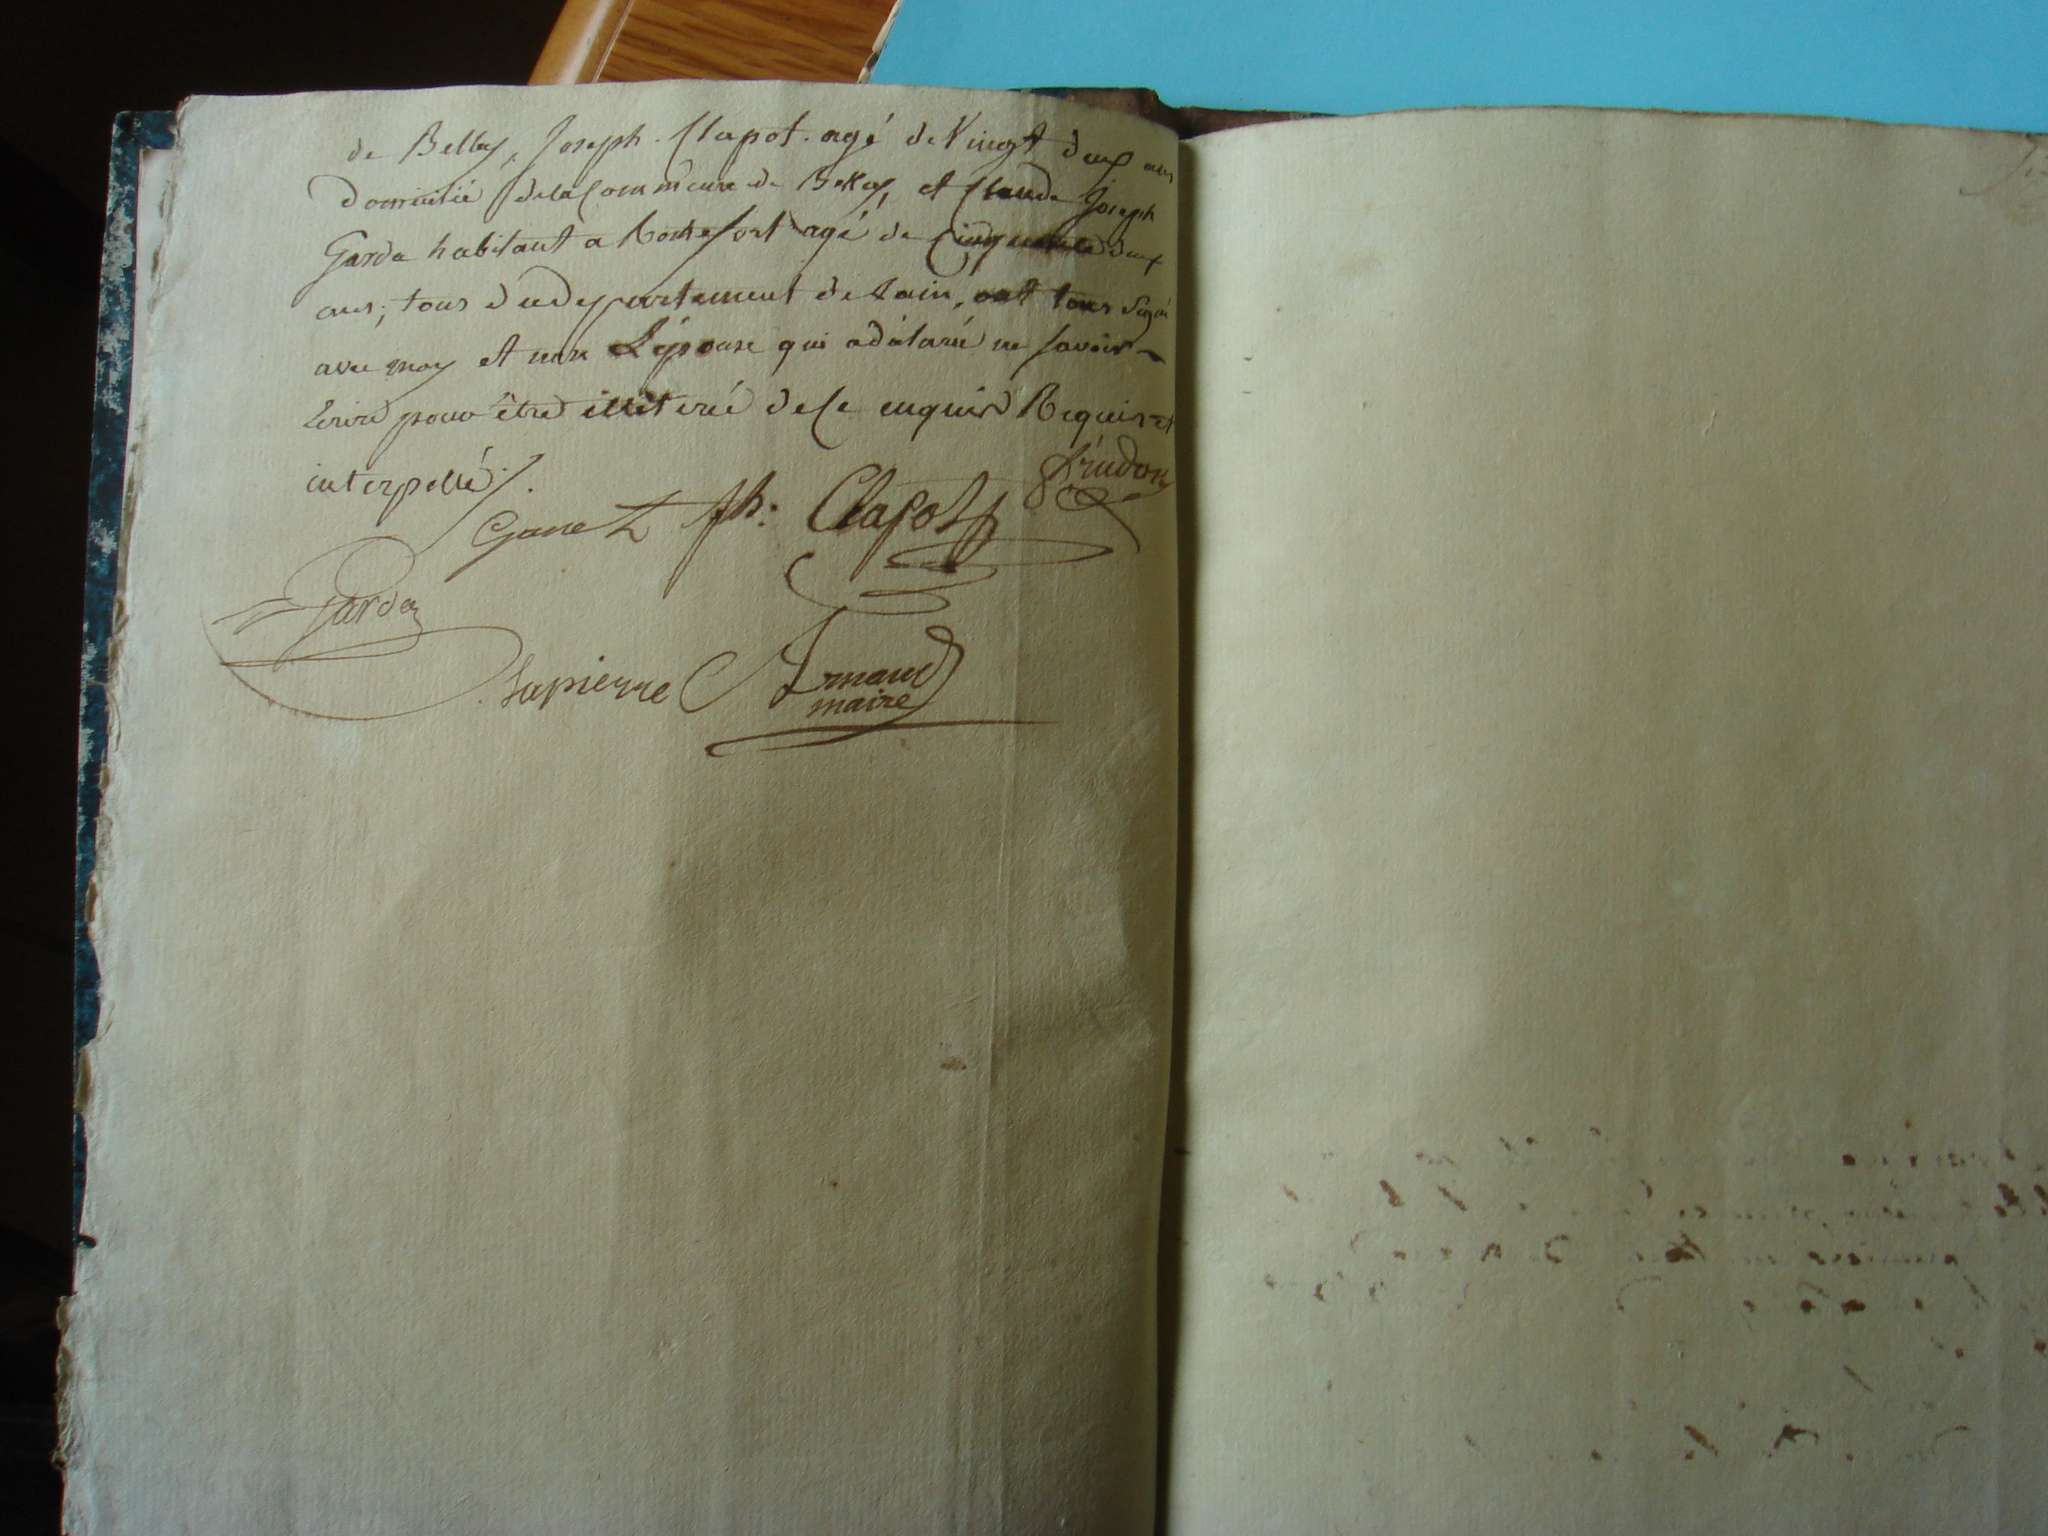 de Belley, Joseph Clapot agé de Vingt deux ans
domicilié de la Commune de Belley, et Claude Joseph
Garda habitant a Rochefort agé de Cinquante deux
ans; tous du departement de Lain, ont tous Signé
avec moy et non L'épouse qui a déclaré ne Savoir
Ecrire pour être illiteré de ce enquise Requis et
interpellé.
Prudon
Ganet Jh: Clapot
Garda
Lapierre Armand
maire